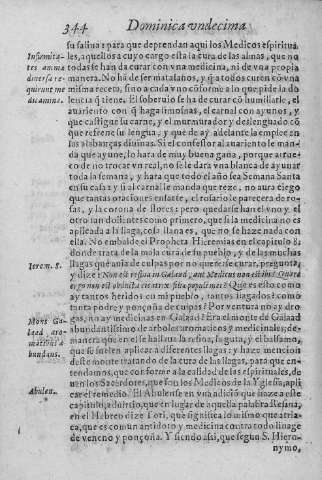 344 Dominica vndecima
su saliua: para que deprendan aqui los Medicos espiritua
Infirmita-
les, aquellos a cuyo cargo està la cura de las almas, que no
tes animæ
todas se han de curar con vna medicina, ni de vna propia
diuersa re-
manera. No hà de ser matasanos, y q̃ a todos curen cõ vna
quirunt me
misma receta, sino a cada vno cõforme a lo que pide la do
dicamina.
lencia q̃ tiene. El soberuio se ha de curar cõ humillarle, el
auariento con q̃ haga limosnas, el carnal con ayunos, y
que castigue su carne, y el murmurador y deslenguado cõ
que refrene su lengua, y que de ay adelante la emplee en
las alabanças diuinas. Si el confessor al auariento le man-
da que ayune, lo hara de muy buena gana, porque atrue-
co de no trocar vn real, no se le dara vna blanca de ayunar
toda la semana, y hara que todo el año sea Semana Santa
en su casa: y si al carnal le manda que reze, no aura ciego
que tantas oraciones ensarte, el rosario le parecera de ro-
sas, y la corona de flores: pero quedarse han el vno y el
otro tan dolientes como primero, que si la medicina no es
aplicada a la llaga, cosa llana es, que no se haze nada con
ella. No embalde el Propheta Hieremias en el capitulo 8.
donde trata de la mala cura de su pueblo, y de las muchas
Ierem. 8.
llagas que auia de culpas por no quererse curar, pregunta,
y dize: Non est resina in Galaad, aut Medicus non est ibi? Quare
ergo non est obducta cicatrix filiæ populi mei? Que es esto como
ay tantos heridos en mi pueblo, tantos llagados? como
tanta podre y ponçoña de culpas? Por ventura no ay dro-
Mons Ga-
gas, no ay medicinas en Galaad? Era el monte de Galaad
laad aro-
abundantissimo de arboles aromaticos y medicinales; de-
matibus a-
manera que en el se hallaua la resina, la guta, y el balsamo,
bundans.
que se suelen aplicar a differentes llagas: y haze mencion
deste monte tratando de la cura de las llagas, para que en-
tendamos, que conforme a la calidad de las espirituales, de
uen los Sacerdotes, que son los Medicos de la Yglesia, apli
Abulen.
car el remedio. El Abulense en vna adiciõ que haze a este
capitulo, aduierte, que en lugar de aquella palabra Resina,
en el Hebreo dize Tori, que significa lo mismo que atria-
ca, que es comun antidoto y medicina contra todo linage
de veneno y ponçoña. Y siendo assi, que segun S. Hiero-
nymo,